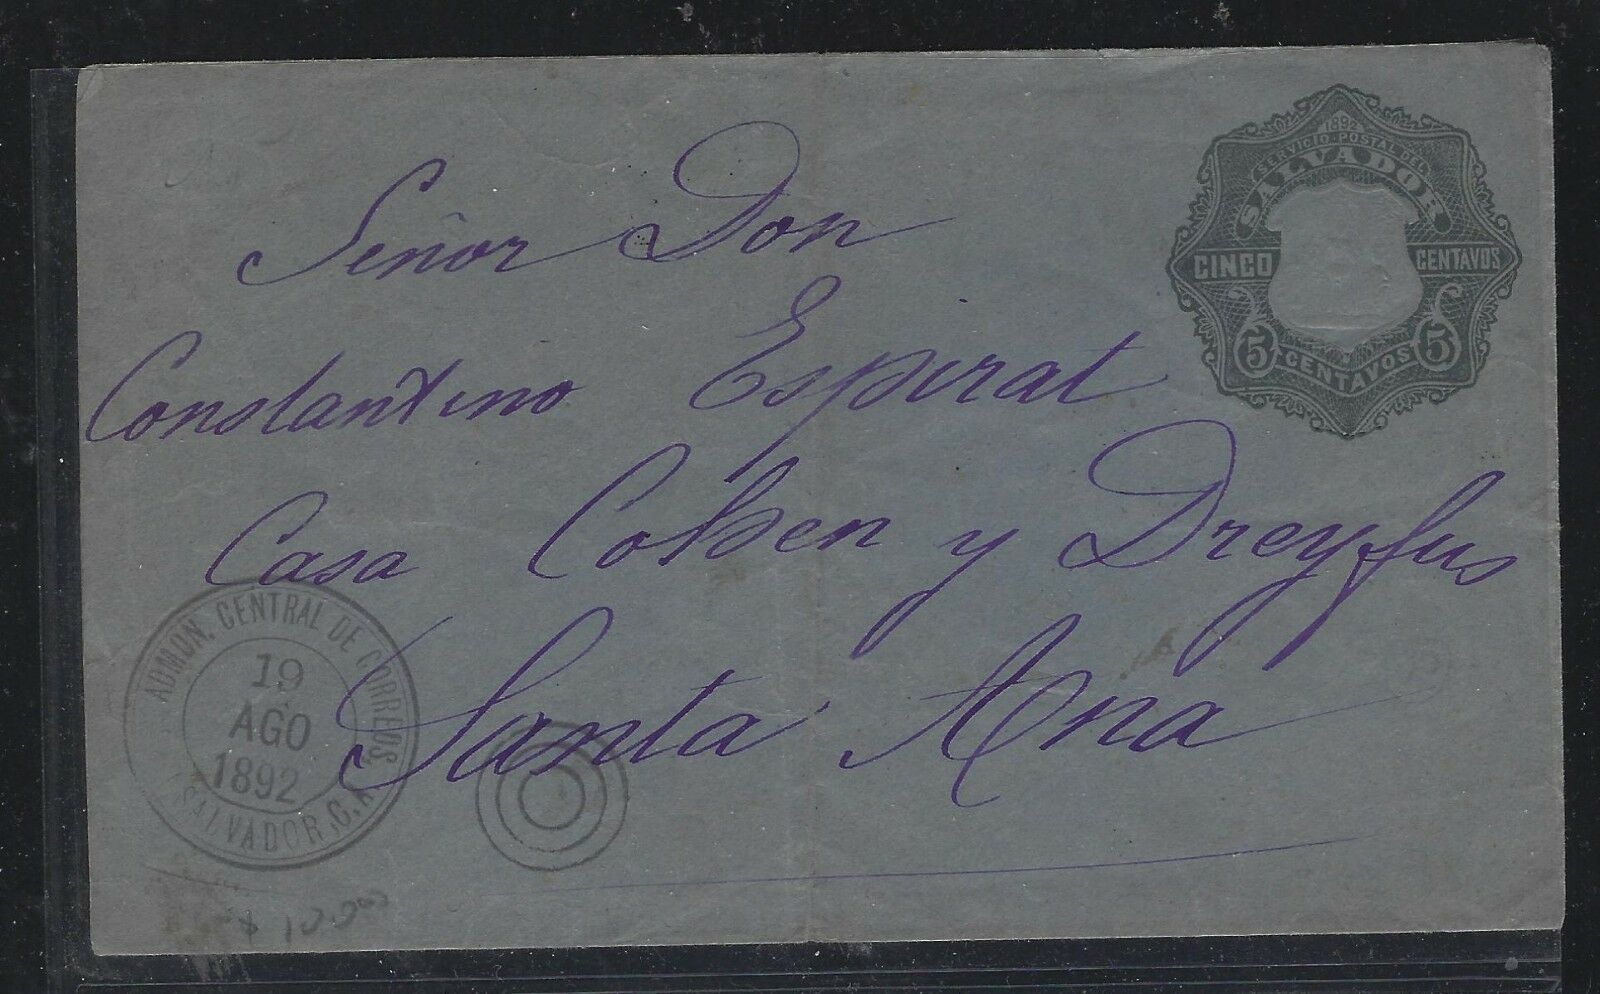 1892
SERVICIO POSTAL DEL
SALVADOR
CINCO CENTAVOS
5 CENTAVOS 5
Señor Don
Constantino Espirat
Casa Cohen y Dreyfus
Santa Ana
ADMON. CENTRAL DE CORREOS
19
AGO
1892
SALVADOR, C.A.
$ 10.00